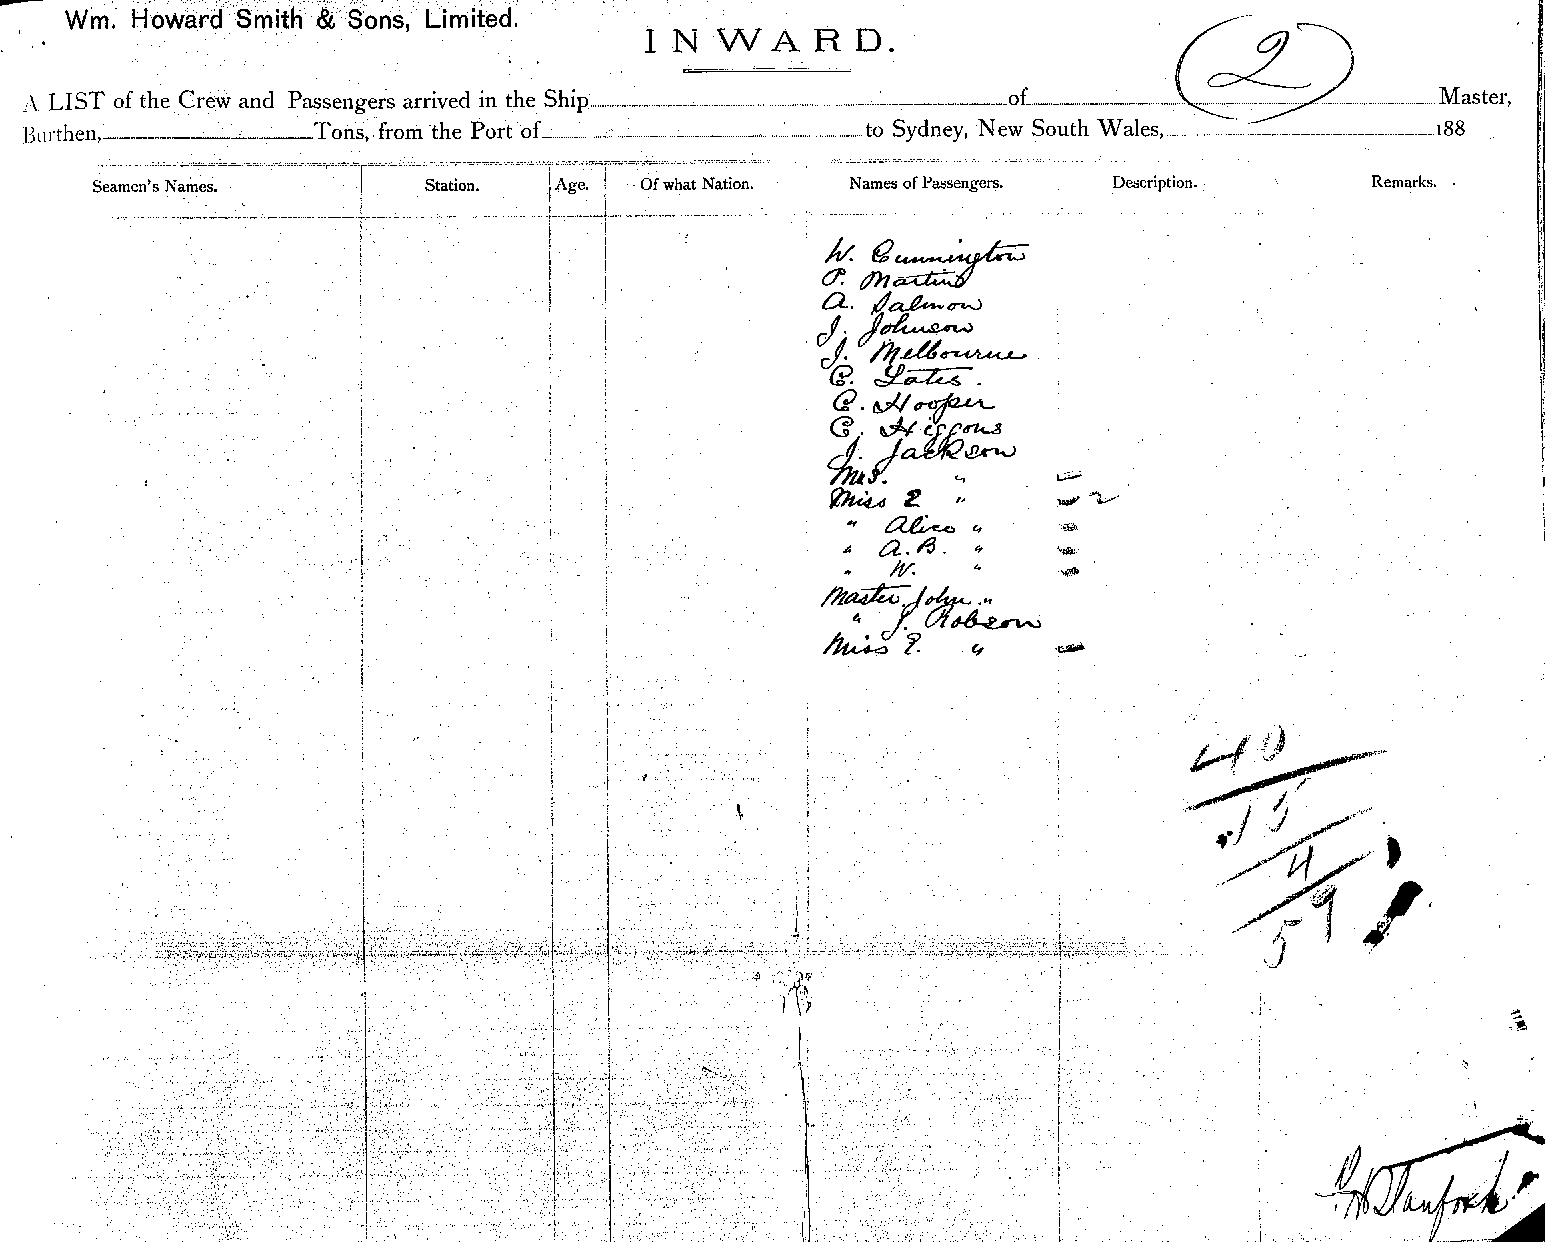 Wm. Howard Smith & Sons, Limited.
INWARD.
2
A LIST of the Crew and Passengers arrived in the Ship of Master,
Burthen, Tons, from the Port of to Sydney, New South Wales, 188
Seamen's Names. Station. Age. Of what Nation. Names of Passengers. Description. Remarks.
W. Cunnington
P. Martin
A. Salmon
J. Johnson
J. Melbourne
C. Yates.
C. Hooper
C. Higgons
J. Jackson
Mrs. "
Miss E "
" Alice "
" A.B. "
" W. "
Master John "
" J. Robson
Miss E. "
40
15
4
59